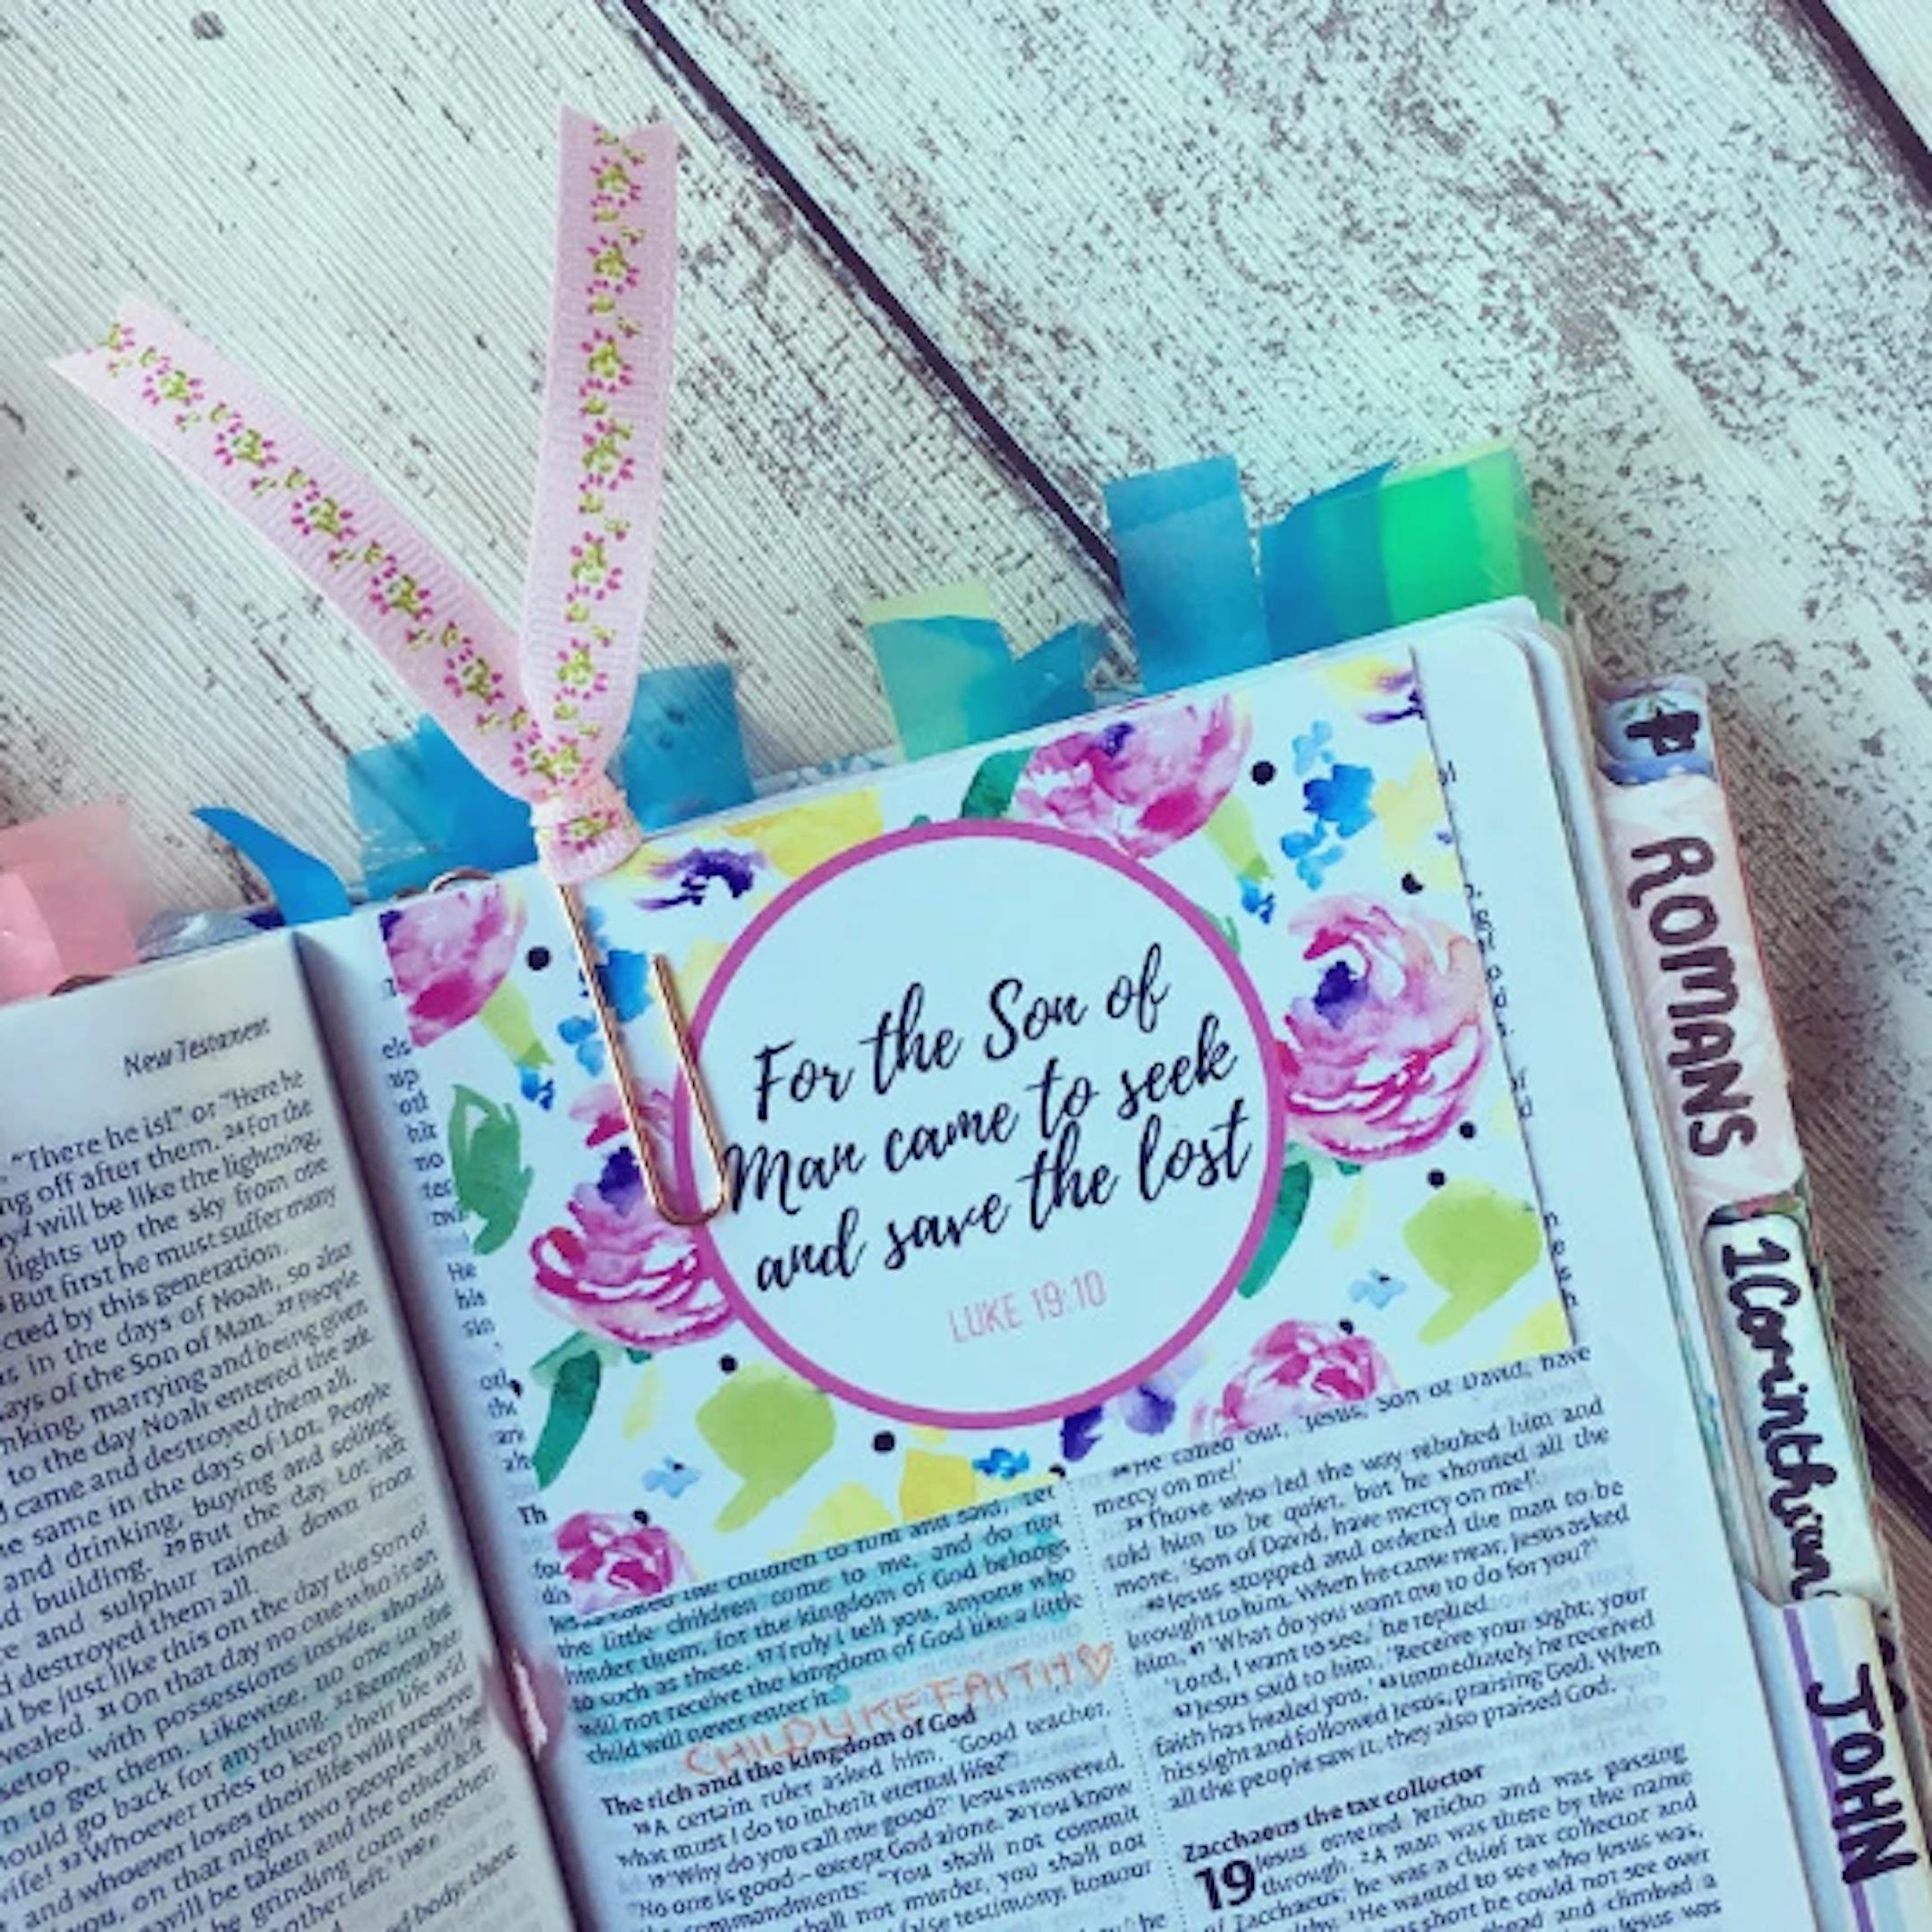 New Testament
"There he is!" or "Here he
ng off after them. 24 For the
will be like the lightning,
lights up the sky from one
But first he must suffer many
cted by this generation.
in the days of Noah, so also
ays of the Son of Man. 27 People
nking, marrying and being given
to the day Noah entered the ark.
came and destroyed them all.
e same in the days of Lot. People
and drinking, buying and selling,
d building. 29 But the day Lot left
e and sulphur rained down from
d destroyed them all.
l be just like this on the day the Son of
vealed. 31 On that day no one who is on
setop, with possessions inside, should
n to get them. Likewise, no one in the
ould go back for anything. 32 Remember
ife! 33 Whoever tries to keep their life will
and whoever loses their life will preserve
you, on that night two people will be
will be taken and the other left.
be grinding corn together;
other left."
For the Son of
Man came to seek
and save the lost
LUKE 19:10
the children to him and said, 'Let
the little children come to me, and do not
hinder them, for the kingdom of God belongs
to such as these. 17 Truly I tell you, anyone who
will not receive the kingdom of God like a little
child will never enter it.'
CHILDLIKE FAITH ♡
The rich and the kingdom of God
18 A certain ruler asked him, 'Good teacher,
what must I do to inherit eternal life?'
19 'Why do you call me good?' Jesus answered.
'No one is good – except God alone. 20 You know
commandments: 'You shall not commit
shall not murder, you shall not
false testimony, honour
38 He called out, 'Jesus, Son of David, have
mercy on me!'
39 Those who led the way rebuked him and
told him to be quiet, but he shouted all the
more, 'Son of David, have mercy on me!'
40 Jesus stopped and ordered the man to be
brought to him. When he came near, Jesus asked
him, 41 'What do you want me to do for you?'
'Lord, I want to see,' he replied.
42 Jesus said to him, 'Receive your sight; your
faith has healed you.' 43 Immediately he received
his sight and followed Jesus, praising God. When
all the people saw it, they also praised God.
Zacchaeus the tax collector
19 Jesus entered Jericho and was passing
through. 2 A man was there by the name
of Zacchaeus; he was a chief tax collector and
3 He wanted to see who Jesus was,
short he could not see over
ahead and climbed a
Jesus was
ROMANS
1 Corinthian
JOHN